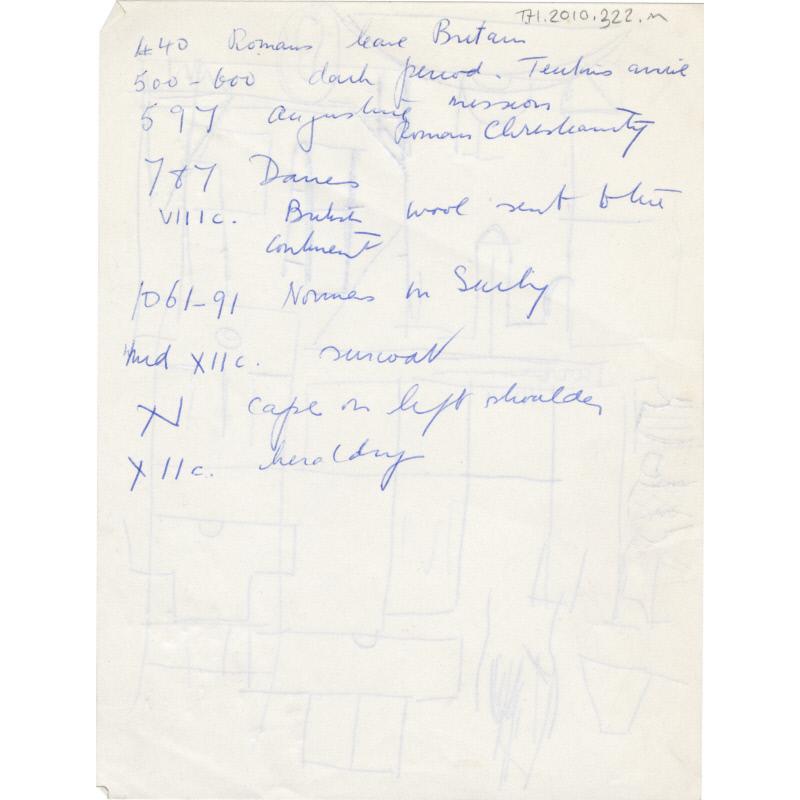 TH.2010.322.m
440 Romans leave Britain
500-600 dark period. Teutons arrive
597 Augustine mission
Roman Christianity
787 Danes
VIIIc. British wool sent to the
continent
1061-91 Normans in Sicily
mid XIIc. surcoat
cape on left shoulder
XIIc. heraldry